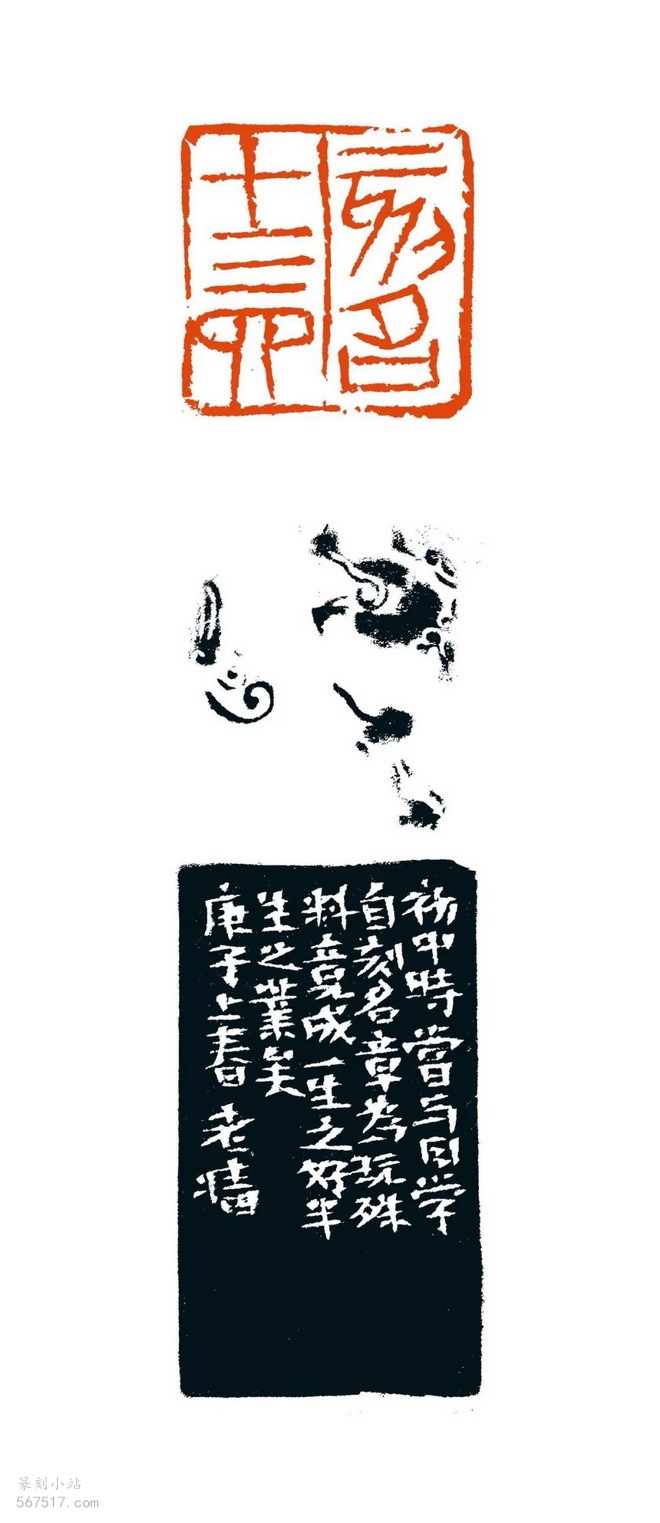 刻名
十三四
初中時嘗与同学
自刻名章為玩殊
料竟成一生之好半
生之業矣
庚子上春 老牆
篆刻小站
567517.com